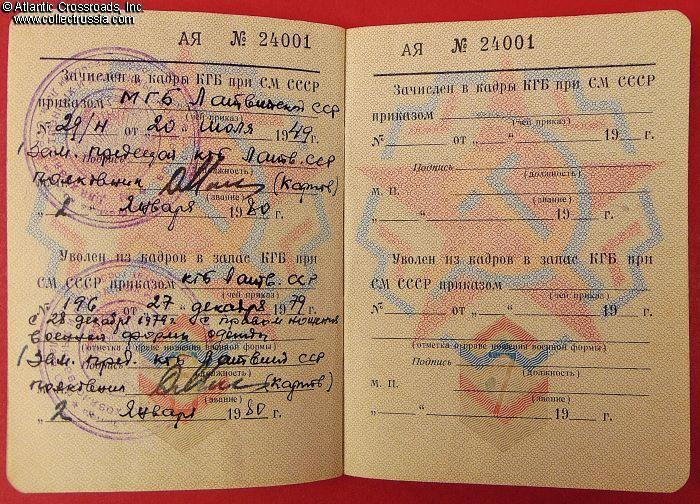 © Atlantic Crossroads, Inc.
www.collectrussia.com
АЯ № 24001
Зачислен в кадры КГБ при СМ СССР
приказом МГБ Латвийской сср
(чей приказ)
№ 29/н от „20“ июля 1949 г.
1 Зам. Председ. кгб Латв. сср
Подпись (должность)
полковник (Карпов)
(звание)
„2“ Января 1980 г.
Уволен из кадров в запас КГБ при
СМ СССР приказом кгб Латв. сср
(чей приказ)
№ 196 от „27“ декабря 1979 г.
с 28 декабря 1979 г. с правом ношения
военной формы одежды
(отметка о праве ношения военной формы)
1 Зам. пред. кгб Латвийск сср
(должность)
полковник (Карпов)
(звание)
„2“ Января 1980 г.
АЯ № 24001
Зачислен в кадры КГБ при СМ СССР
приказом
(чей приказ)
№ от „ “ 19 г.
Подпись
(должность)
М. П.
(звание)
„ “ 19 г.
Уволен из кадров в запас КГБ при
СМ СССР приказом
(чей приказ)
№ от „ “ 19 г.
(отметка о праве ношения военной формы)
Подпись
(должность)
М. П.
(звание)
„ “ 19 г.